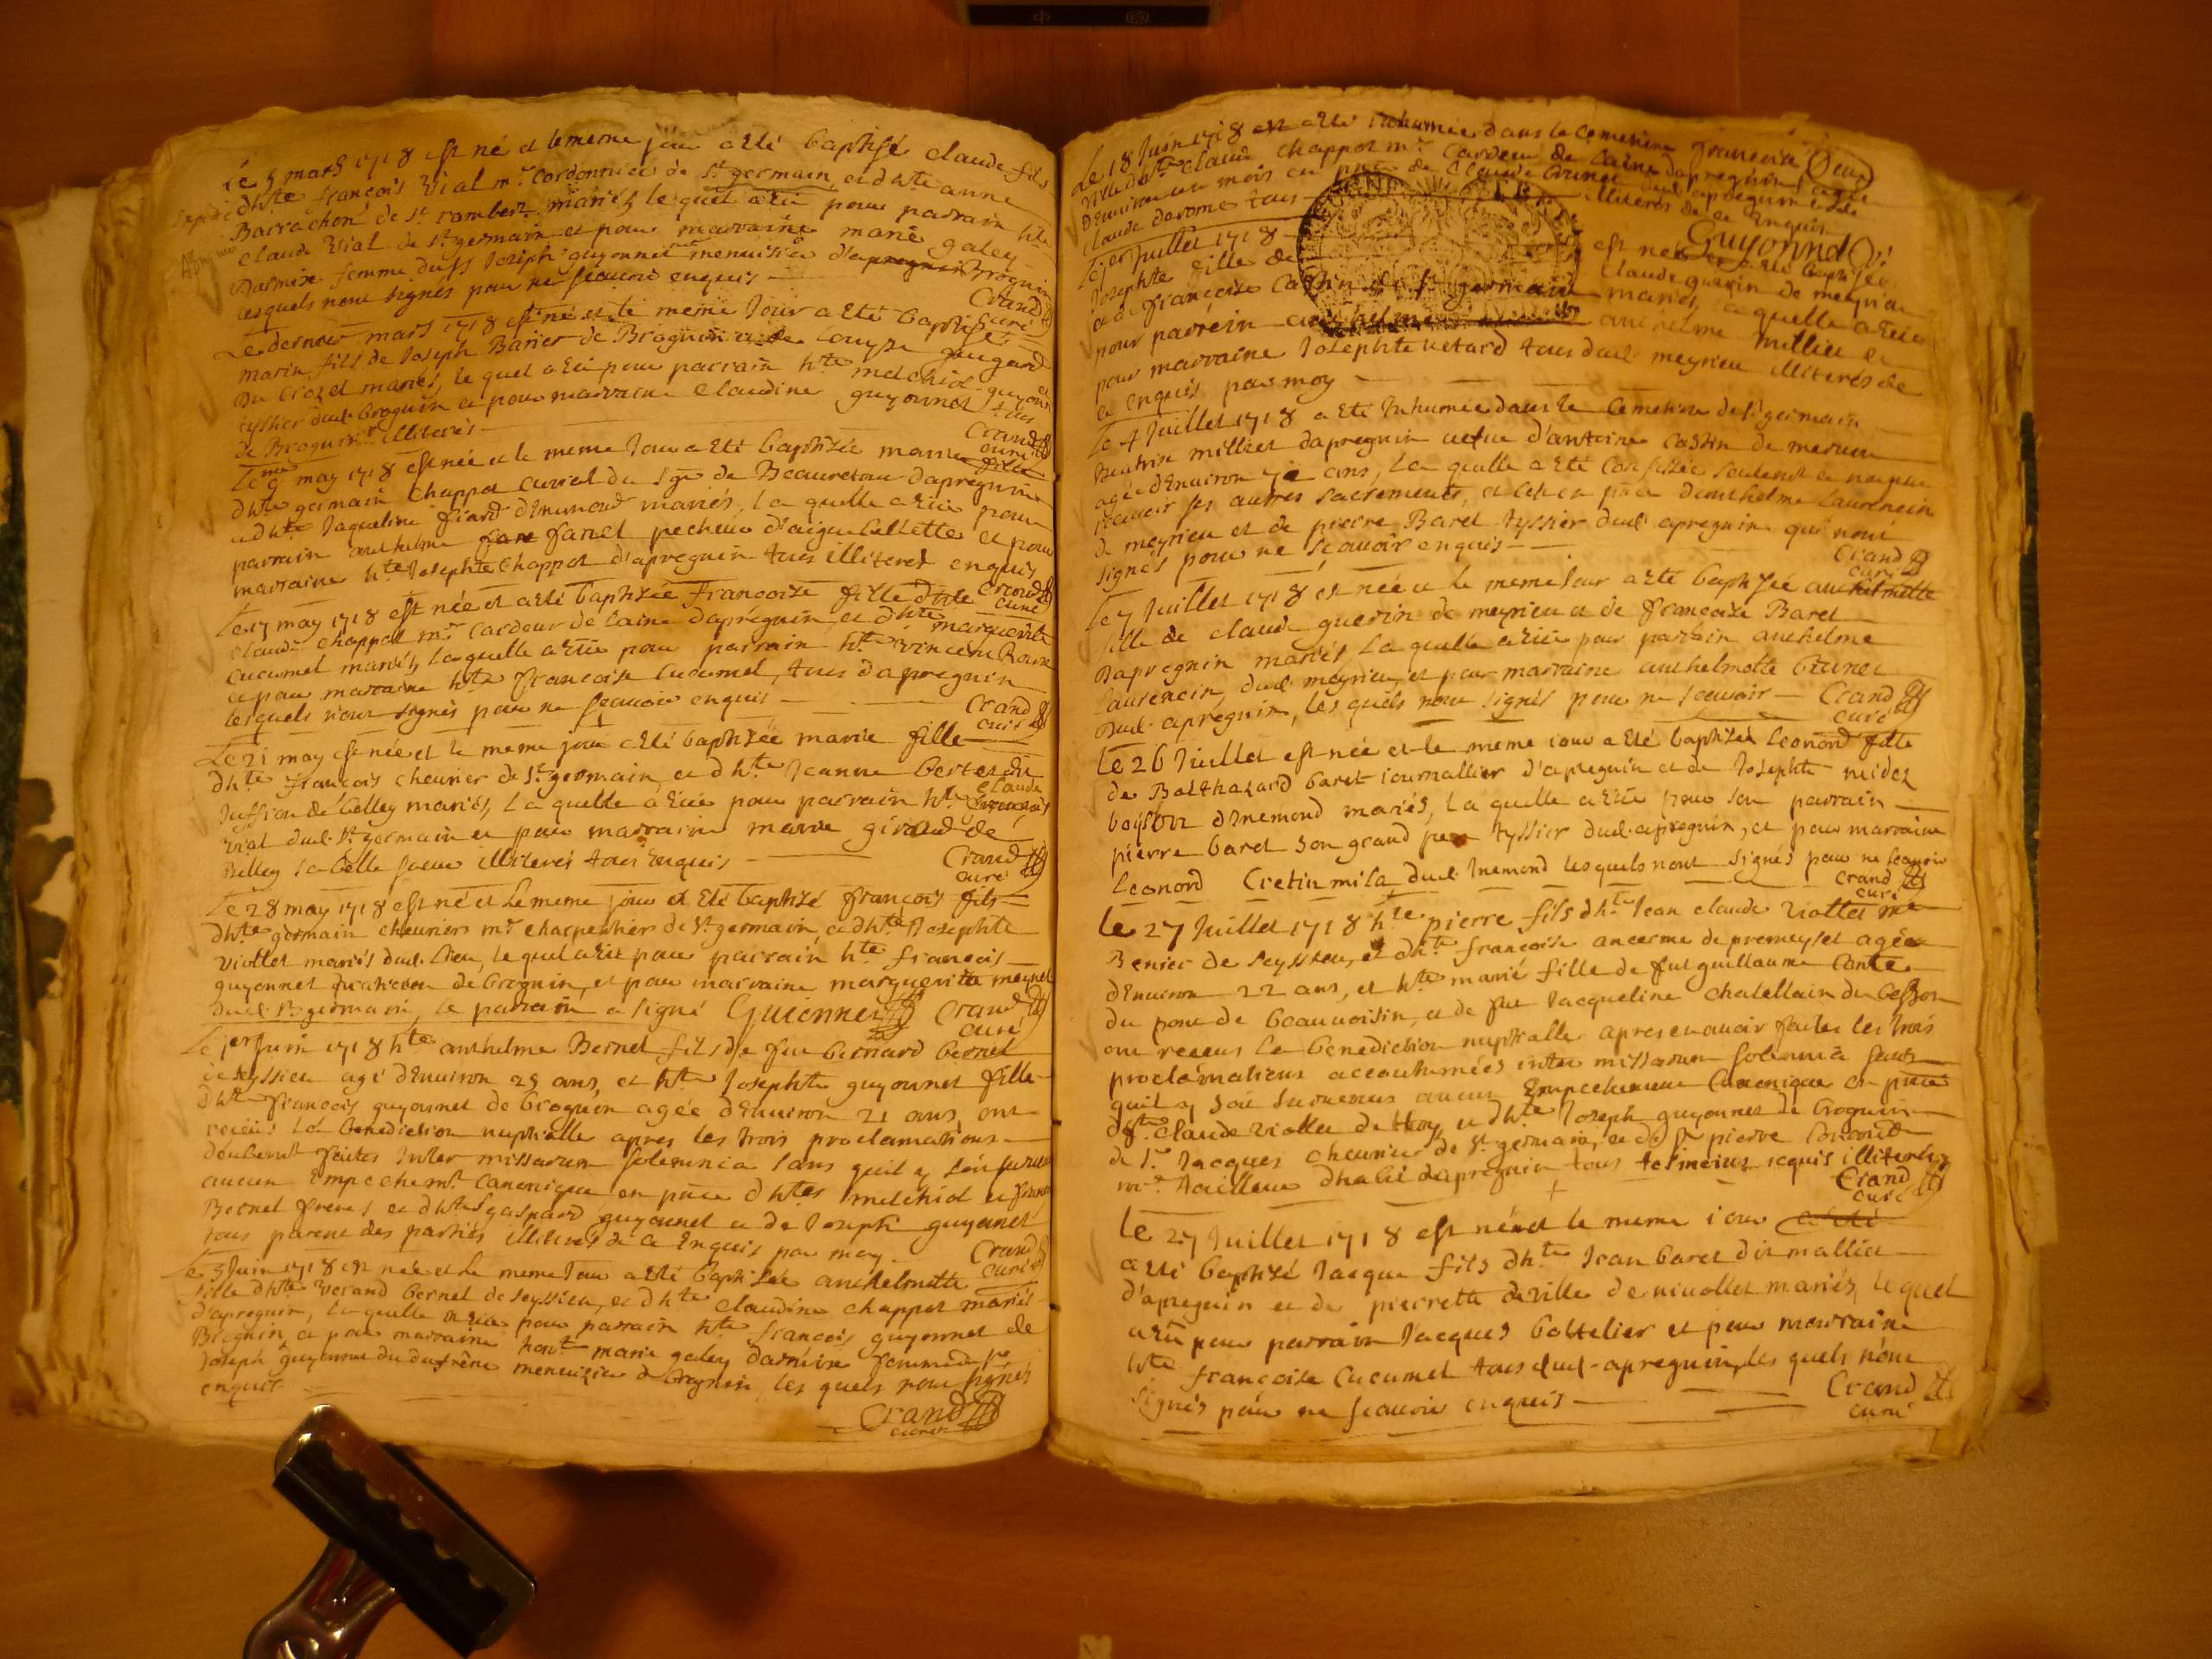 Le 5 mars 1718 est né et le meme jour a eté baptisé claude fils
dhte françois Vial mr. Cordonnier de st. germain, et dhte anne
Barrachon de st. rambert mariés, le quel a eu pour parrain hte
claude vial de st. germain et pour marraine marie galey
Darmise femme du ss Joseph guyonnet menuisier d'apregnin Brognin
lesquels n'ont signés pour ne sçavoir enquis
Crand
curé
Le dernier mars 1718 est né et le meme Jour a eté baptisé
marin fils de Joseph Barier de Brognin et de Louyse
du mariés, le quel a eu pour parrain hte melchiol guyonnet
tyssier dud. brognin et pour marraine claudine guyonnet tous
de Brognin illiterés
Crand
curé
Le 9me may 1718 est née et le meme Jour a eté baptisée marie fille
dhte germain Chappot curial du Sgr de Beauretour dapregnin
et dhte Jaqueline fiard d'Inimond mariés, la quelle a eu pour
parrain anthelme fanet pecheur d'aiguebellette et pour
marraine hte Josephte Chappot d'apregnin tous illiteres enquis
Crand
curé
Le 17 may 1718 est née et a eté baptisée françoise fille dhte
claude chappot mr. Cardeur de laine d'apregnin et dhte marguerite
Cucumel mariés, laquelle a eu pour parrain hte vincent
et pour marraine hte françoise Cucumel, tous dapregnin
lesquels n'ont signés pour ne sçavoir enquis
Crand
curé
Le 21 may est née et le meme jour a eté baptisée marie fille
dhte françois cheurier de st. germain, et dhte Jeanne bertet du
claude
de Belley mariés, la quelle a eu pour parrain hte françois
vial dud. st. germain et pour marraine marie giraud de
Belley sa belle soeur illiterés tous enquis
Crand
curé
Le 28 may 1718 est né et le meme jour a eté baptisé françois fils
dhte germain cheurier mr. charpentier de st. germain, et dhte Josephte
viollet mariés dud. lieu, le quel a eu pour parrain hte françois
guyonnet de brognin, et pour marraine marguerite meynet
dud. st. germain, le parrain a signé Guionnet Crand
curé
Le jer Juin 1718 hte anthelme Bernet fils de feu bernard bernet
de seyssieu agé d'Environ 25 ans, et hte Josephte guyonnet fille
dhte françois guyonnet de brognin agée d'Environ 21 ans, ont
receus la benediction nuptialle apres les trois proclamations
deubemt faites Inter missarum solemnia sans quil y soit suruenu
aucun Empechemt canonique en pnce dhtes melchiol et
Bernet freres et dhtes gaspard guyonnet et de Joseph guyonnet
tous parens des parties illiterés de ce Enquis par moy
Crand
curé
Le 5 Juin 1718 est née et le meme Jour a eté baptisée anthelmette
fille dhte Verand bernet de seyssieu, et dhte claudine chappot mariés
d'apregnin, la quelle a eu pour parrain hte françois guyonnet de
Brognin, et pour marraine hont. marie galey darmise femme de
Joseph guyonnet du dufrêne menuizier de brognin, les quels n'ont signés
enquis
Crand
curé
Le 18 Juin 1718 est a eté inhumée dans le cemetiere françoise
dhte claude chappot mr Cardeur de laine dapregnin agée
d'environ un mois en pnce de claude brunet dud. apregnin et de
claude darome tous illiterés de ce Enquis
Guyonnet
Le jer Juillet 1718 est née et a eté baptisée
Josephte fille de claude guerin de meyrieu
et de françoise Castin de st. germain mariés, la quelle a eu
pour parrein anthelme anthelme millet et
pour marraine Josephte uetard tous dud. meyrieu illiterés de
ce enquis par moy
Le 4 Juillet 1718 a eté Inhumée dans le Cemetiere de st. germain
Beatrix milliet dapregnin uefue d'antoine castin de
agée d'Environ 70 ans, la quelle a eté confessée seulemt et na peu
recevoir les autres sacrements, et ce en pnce d'anthelme laurencin
de meyrieu et de pierre Baret tyssier dud. apregnin qui n'ont
signés pour ne sçavoir enquis
Crand
curé
Le 7 Juillet 1718 est née et le meme Jour a eté baptisée anthelmette
fille de claude guerin de meyrieu et de françoise Baret
Dapregnin mariés la quelle a eu pour parrain anthelme
laurencin, dud. meyrieu, et pour marraine anthelmette brunet
dud. apregnin, les quels n'ont signés pour ne sçavoir
Crand
curé
Le 26 Juillet est née et le meme iour a eté baptisée Leonord fille
de Balthazard baret iournallier d'apregnin et de Josephte midez
d'Inemond mariés, la quelle a eu pour son parrain
pierre baret son grand pere tyssier dud. apregnin, et pour marraine
Leonord Cretin mila dud. Inemond lesquels n'ont signés pour ne sçavoir
Crand
curé
Le 27 Juillet 1718 hte pierre fils dhte Jean claude viollet me
Benier de seyssieu, et dhte françoise ancerme de premeysel agée
d'Environ 22 ans, et hte marie fille de fut guillaume Conte
du pont de beauuoisin, et de fue Jacqueline chatellain du
ont receus la benediction nuptialle apres en auoir faites les trois
proclamations accoutumées inter missarum solemnia sans
quil y soit suruenus aucun Empechement Canonique en pnce
dhte claude viollet de et dhte Joseph guyonnet de brognin
de sr. Jacques cheurier de st. germain, et de sr pierre
mr. tailleur dhabit dapregnin tous temoins requis illiterés
Crand
curé
Le 27 Juillet 1718 est né et le meme iour a eté
a eté baptisé Jacque fils dhte Jean baret dit malliet
d'apregnin et de pierrette deville de niuollet mariés, le quel
a eu pour parrain Jacques bottelier et pour marraine
hte françoise Cucumel tous dud. apregnin, les quels n'ont
signés pour ne scauoir enquis
Crand
curé